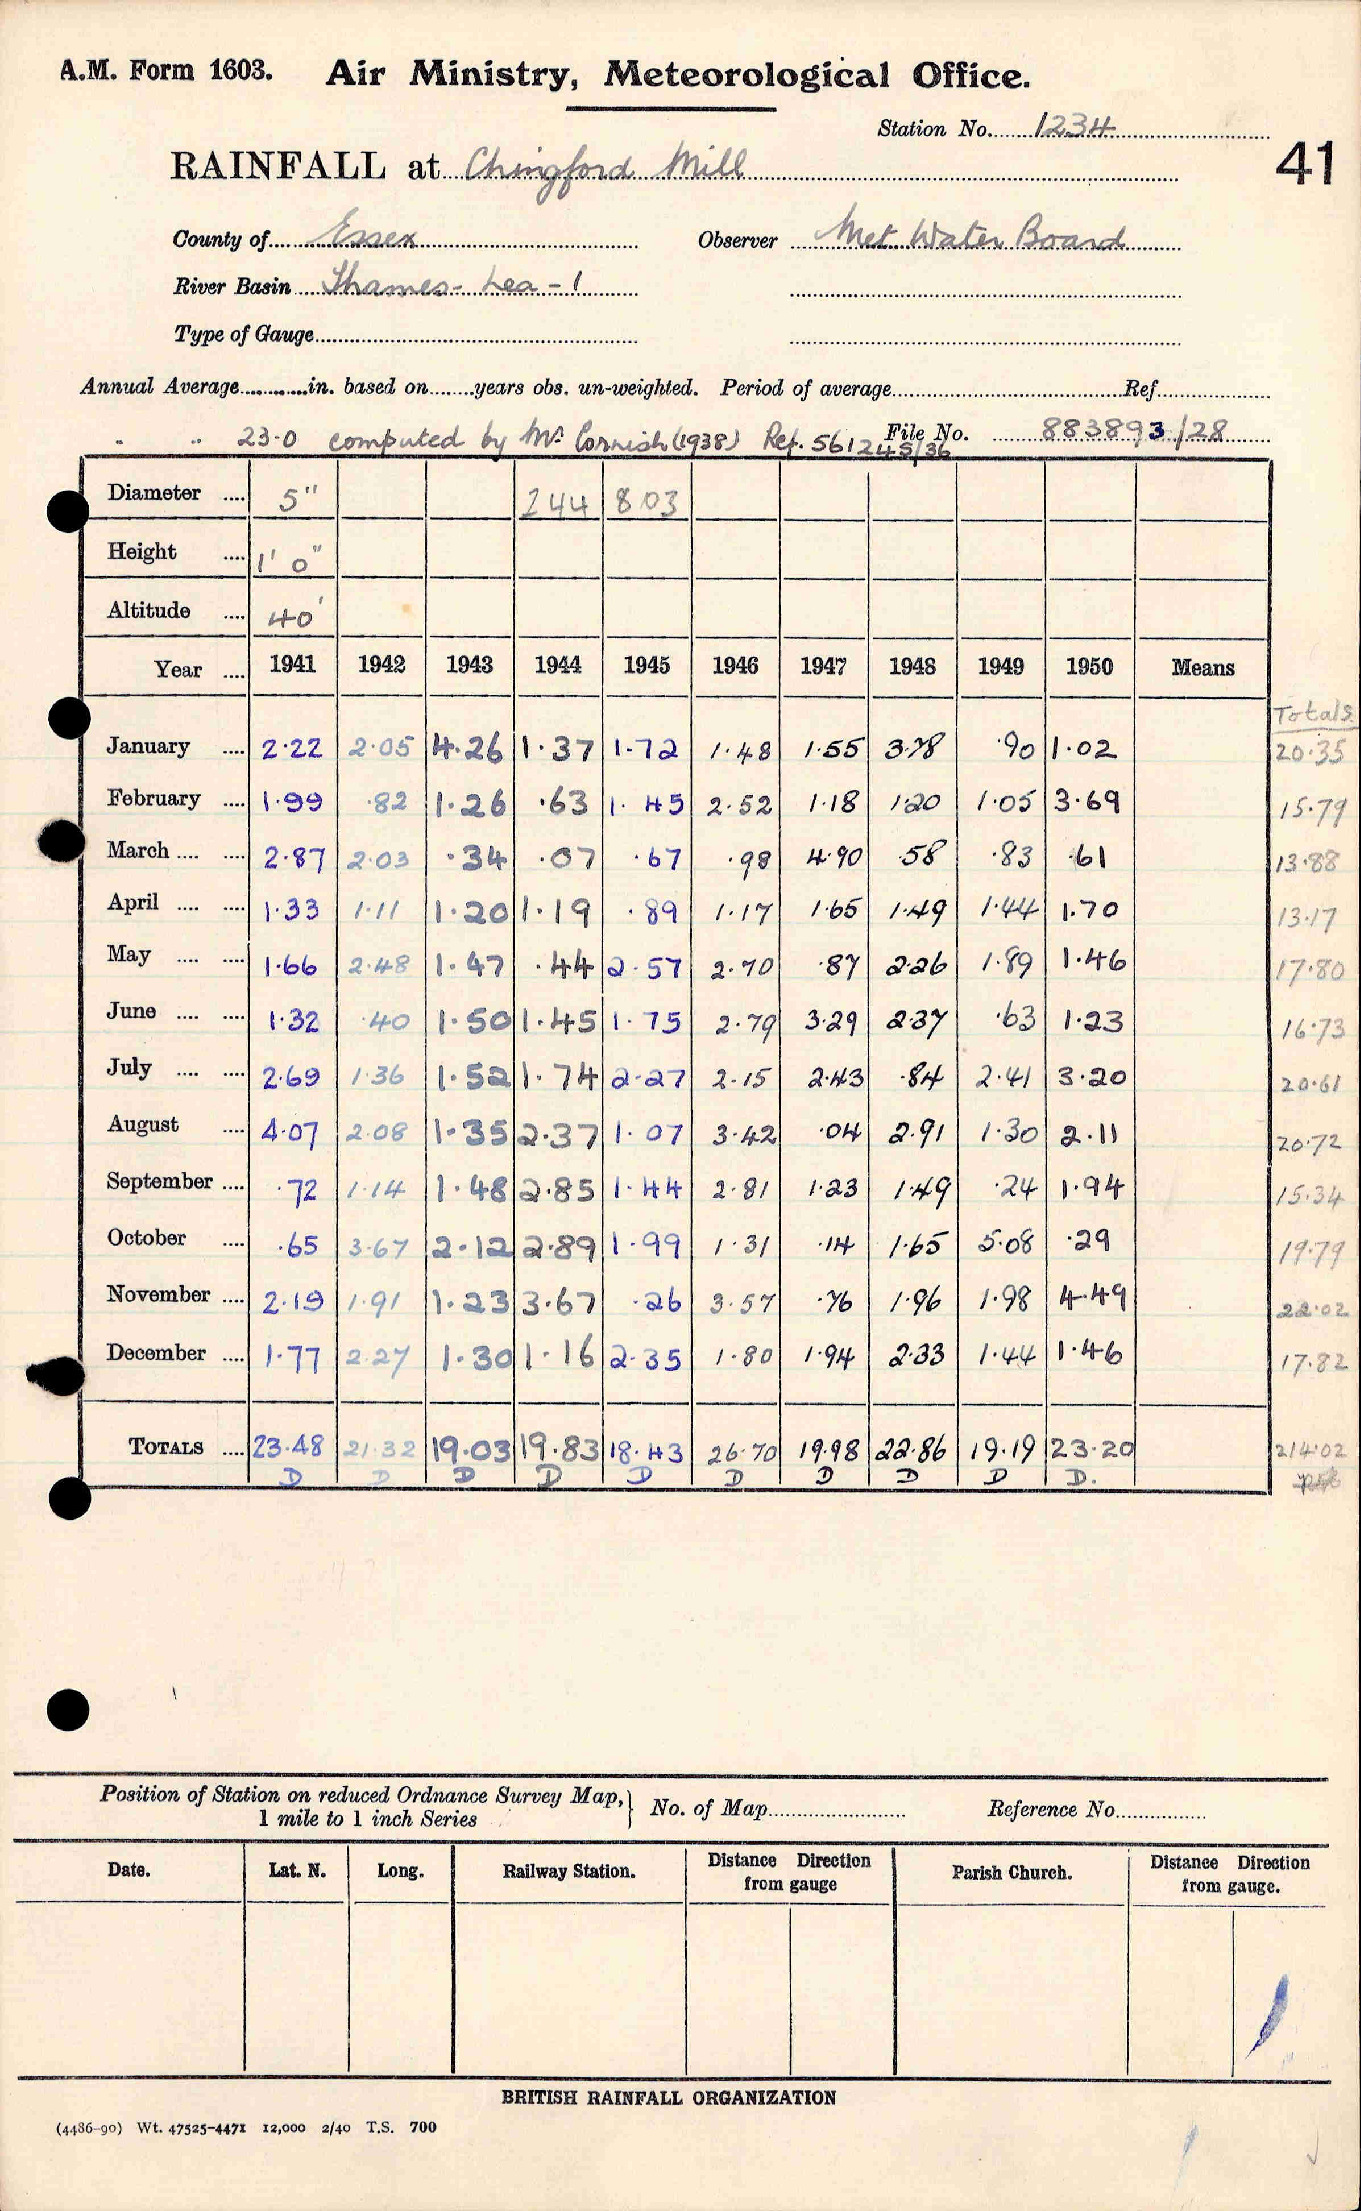 A.M. Form 1603. Air Ministry, Meteorological Office.
Station No. 1234
41
RAINFALL at Chingford Mill
County of Essex Observer Met Water Board
River Basin Thames - Lea - 1
Type of Gauge
Annual Average in. based on years obs. un-weighted. Period of average Ref.
" " 23.0 computed by Mr Cornish (1938) Ref. 561245/36 File No. 883893/28
Diameter 5" 244 803
Height 1' 0"
Altitude 40'
Year 1941 1942 1943 1944 1945 1946 1947 1948 1949 1950 Means
Totals
January 2.22 2.05 4.26 1.37 1.72 1.48 1.55 3.78 .90 1.02 20.35
February 1.99 .82 1.26 .63 1.45 2.52 1.18 1.20 1.05 3.69 15.79
March 2.87 2.03 .34 .07 .67 .98 4.90 .58 .83 .61 13.88
April 1.33 1.11 1.20 1.19 .89 1.17 1.65 1.49 1.44 1.70 13.17
May 1.66 2.48 1.47 .44 2.57 2.70 .87 2.26 1.89 1.46 17.80
June 1.32 .40 1.50 1.45 1.75 2.79 3.29 2.37 .63 1.23 16.73
July 2.69 1.36 1.52 1.74 2.27 2.15 2.43 .84 2.41 3.20 20.61
August 4.07 2.08 1.35 2.37 1.07 3.42 .04 2.91 1.30 2.11 20.72
September .72 1.14 1.48 2.85 1.44 2.81 1.23 1.49 .24 1.94 15.34
October .65 3.67 2.12 2.89 1.99 1.31 .14 1.65 5.08 .29 19.79
November 2.19 1.91 1.23 3.67 .26 3.57 .76 1.96 1.98 4.49 22.02
December 1.77 2.27 1.30 1.16 2.35 1.80 1.94 2.33 1.44 1.46 17.82
TOTALS 23.48 21.32 19.03 19.83 18.43 26.70 19.98 22.86 19.19 23.20 214.02
D D D D D D D D D D.
Position of Station on reduced Ordnance Survey Map,
1 mile to 1 inch Series
No. of Map Reference No.
Date. Lat. N. Long. Railway Station. Distance Direction
from gauge Parish Church. Distance Direction
from gauge.
BRITISH RAINFALL ORGANIZATION
(4486-90) Wt. 47525-4471 12,000 2/40 T.S. 700